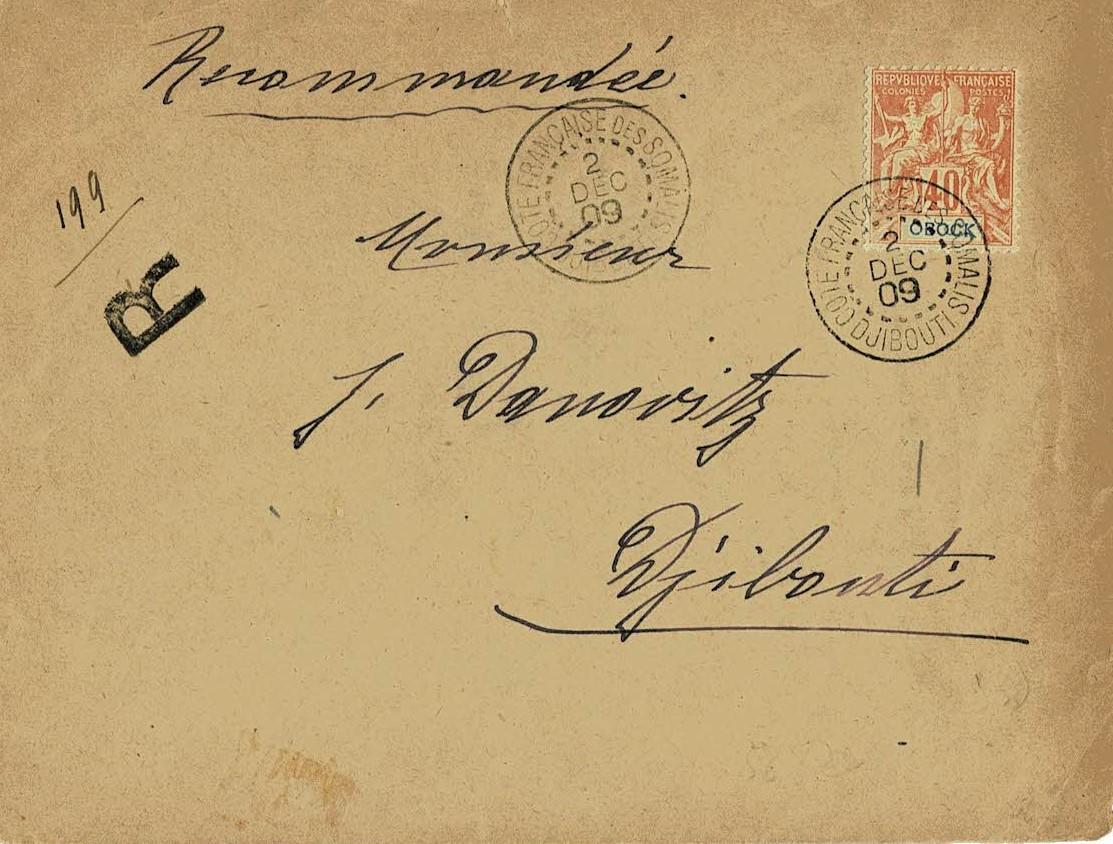 Recommandée.
REPVBLIQVE FRANÇAISE
COLONIES POSTES
40
OBOCK
CÔTE FRANÇAISE DES SOMALIS
2
DEC
09
CÔTE FRANÇAISE DES SOMALIS
2
DEC
09
DJIBOUTI
199
R
Monsieur
J. Danovitz
Djibouti